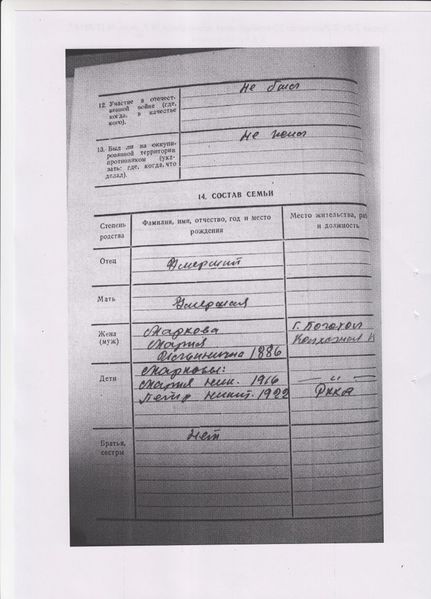 Не был
12. Участие в отечест-
венной войне (где,
когда, в качестве
кого).
Не жил
13. Был ли на оккупи-
рованной территории
противником (ука-
зать: где, когда, что
делал).
14. СОСТАВ СЕМЬИ
Степень родства
Фамилия, имя, отчество, год и место рождения
Место жительства, и должность
Отец
Умерший
Мать
Умершая
Жена (муж)
Маркова
Мария
1886
Г.
Дети
Марковы:
Мария Ник. 1916
— " —
Петр Никит. 1922
РККА
Братья, сестры
Нет